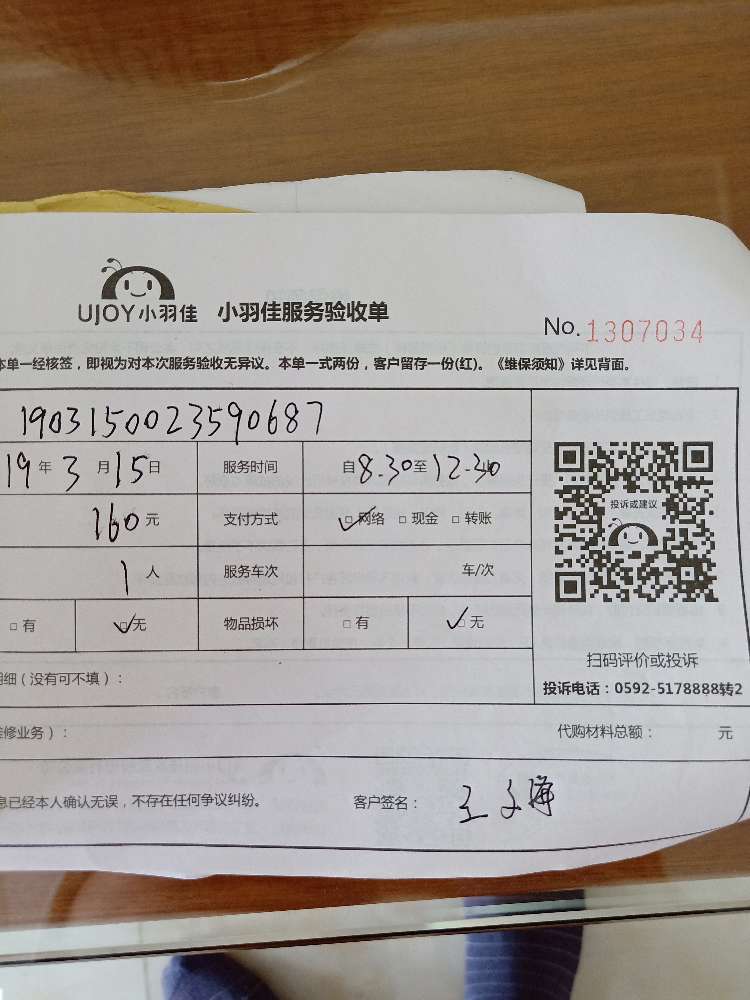 UJOY小羽佳 小羽佳服务验收单
No. 1307034
本单一经核签，即视为对本次服务验收无异议。本单一式两份，客户留存一份(红)。《维保须知》详见背面。
1903150023590687
19年3月15日 服务时间 自8.30至12.30
160元 支付方式 ☑网络 □现金 □转账
投诉或建议
1人 服务车次 车/次
□有 ☑无 物品损坏 □有 ☑无
扫码评价或投诉
明细（没有可不填）：
投诉电话：0592-5178888转2
维修业务）： 代购材料总额： 元
息已经本人确认无误，不存在任何争议纠纷。 客户签名： 王文海